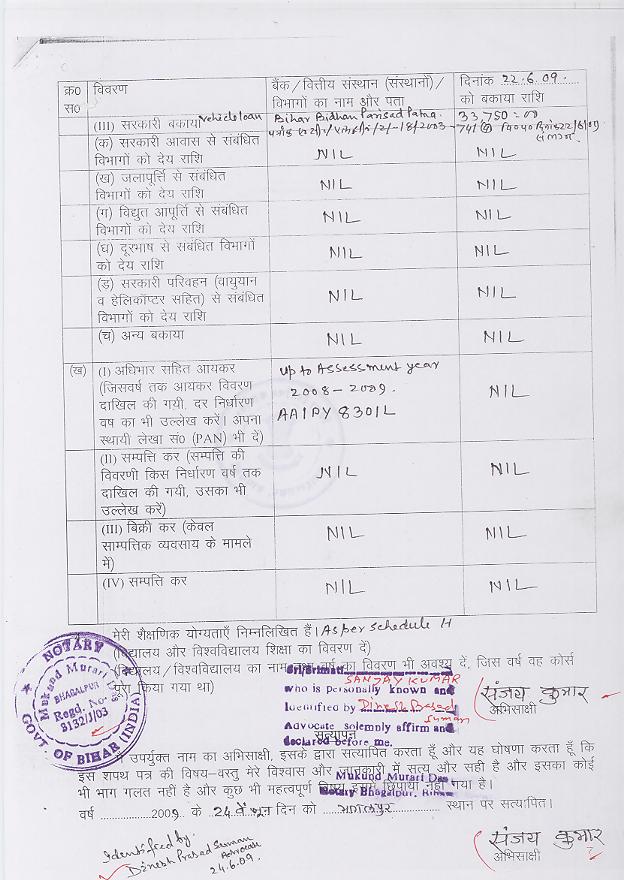 क्र0 विवरण बैंक/वित्तीय संस्थान (संस्थानों)/ दिनांक 22.6.09.
स0 विभागों का नाम और पता को बकाया राशि
(III) सरकारी बकाया vehicle loan Bihar Bidhan Parisad Patna. 33,750=00
(क) सरकारी आवास से संबंधित
विभागों को देय राशि NIL NIL
(ख) जलापूर्त्ति से संबंधित
विभागों को देय राशि NIL NIL
(ग) विद्युत आपूर्त्ति से संबंधित
विभागों को देय राशि NIL NIL
(घ) दूरभाष से सबंधित विभागों
को देय राशि NIL NIL
(ड) सरकारी परिवहन (वायुयान
व हेलिकॉप्टर सहित) से संबंधित
विभागों को देय राशि NIL NIL
(च) अन्य बकाया NIL NIL
(ख) (I) अधिभार सहित आयकर up to Assessment year
(जिसवर्ष तक आयकर विवरण 2008-2009.
दाखिल की गयी, दर निर्धारण AAIPY 8301L NIL
वष का भी उल्लेख करें। अपना
स्थायी लेखा सं0 (PAN) भी दें)
(II) सम्पत्ति कर (सम्पत्ति की
विवरणी किस निर्धारण वर्ष तक NIL NIL
दाखिल की गयी, उसका भी
उल्लेख करें)
(III) बिक्री कर (केवल
साम्पत्तिक व्यवसाय के मामले NIL NIL
में)
(IV) सम्पत्ति कर NIL NIL
मेरी शैक्षणिक योग्यताएँ निम्नलिखित हैं। As per schedule H
(विद्यालय और विश्वविद्यालय शिक्षा का विवरण दें)
(विद्यालय/विश्वविद्यालय का नाम वर्ष का विवरण भी अवश्य दें, जिस वर्ष वह कोर्स
पूरा किया गया था)
NOTARY
Mukund Murari Das
BHAGALPUR
Regd. No-
B132/J/03
GOVT OF BIHAR (INDIA)
Sri/Srimati
SANJAY KUMAR
who is personally known and
Identified by Dinesh Prasad
Suman
Advocate solemnly affirm and
declared before me.
संजय कुमार
अभिसाक्षी
सत्यापन
उपर्युक्त नाम का अभिसाक्षी, इसके द्वारा सत्यापित करता हूँ और यह घोषणा करता हूँ कि
इस शपथ पत्र की विषय-वस्तु मेरे विश्वास और जानकारी में सत्य और सही है और इसका कोई
भी भाग गलत नहीं है और कुछ भी महत्वपूर्ण विषय इसमें छिपाया नहीं गया है।
Mukund Murari Das
Notary Bhagalpur, Bihar
वर्ष 2009 के 24 वें जून दिन को भागलपुर स्थान पर सत्यापित।
Identified by.
Dinesh Prasad Suman
Advocate
24.6.09.
संजय कुमार
अभिसाक्षी